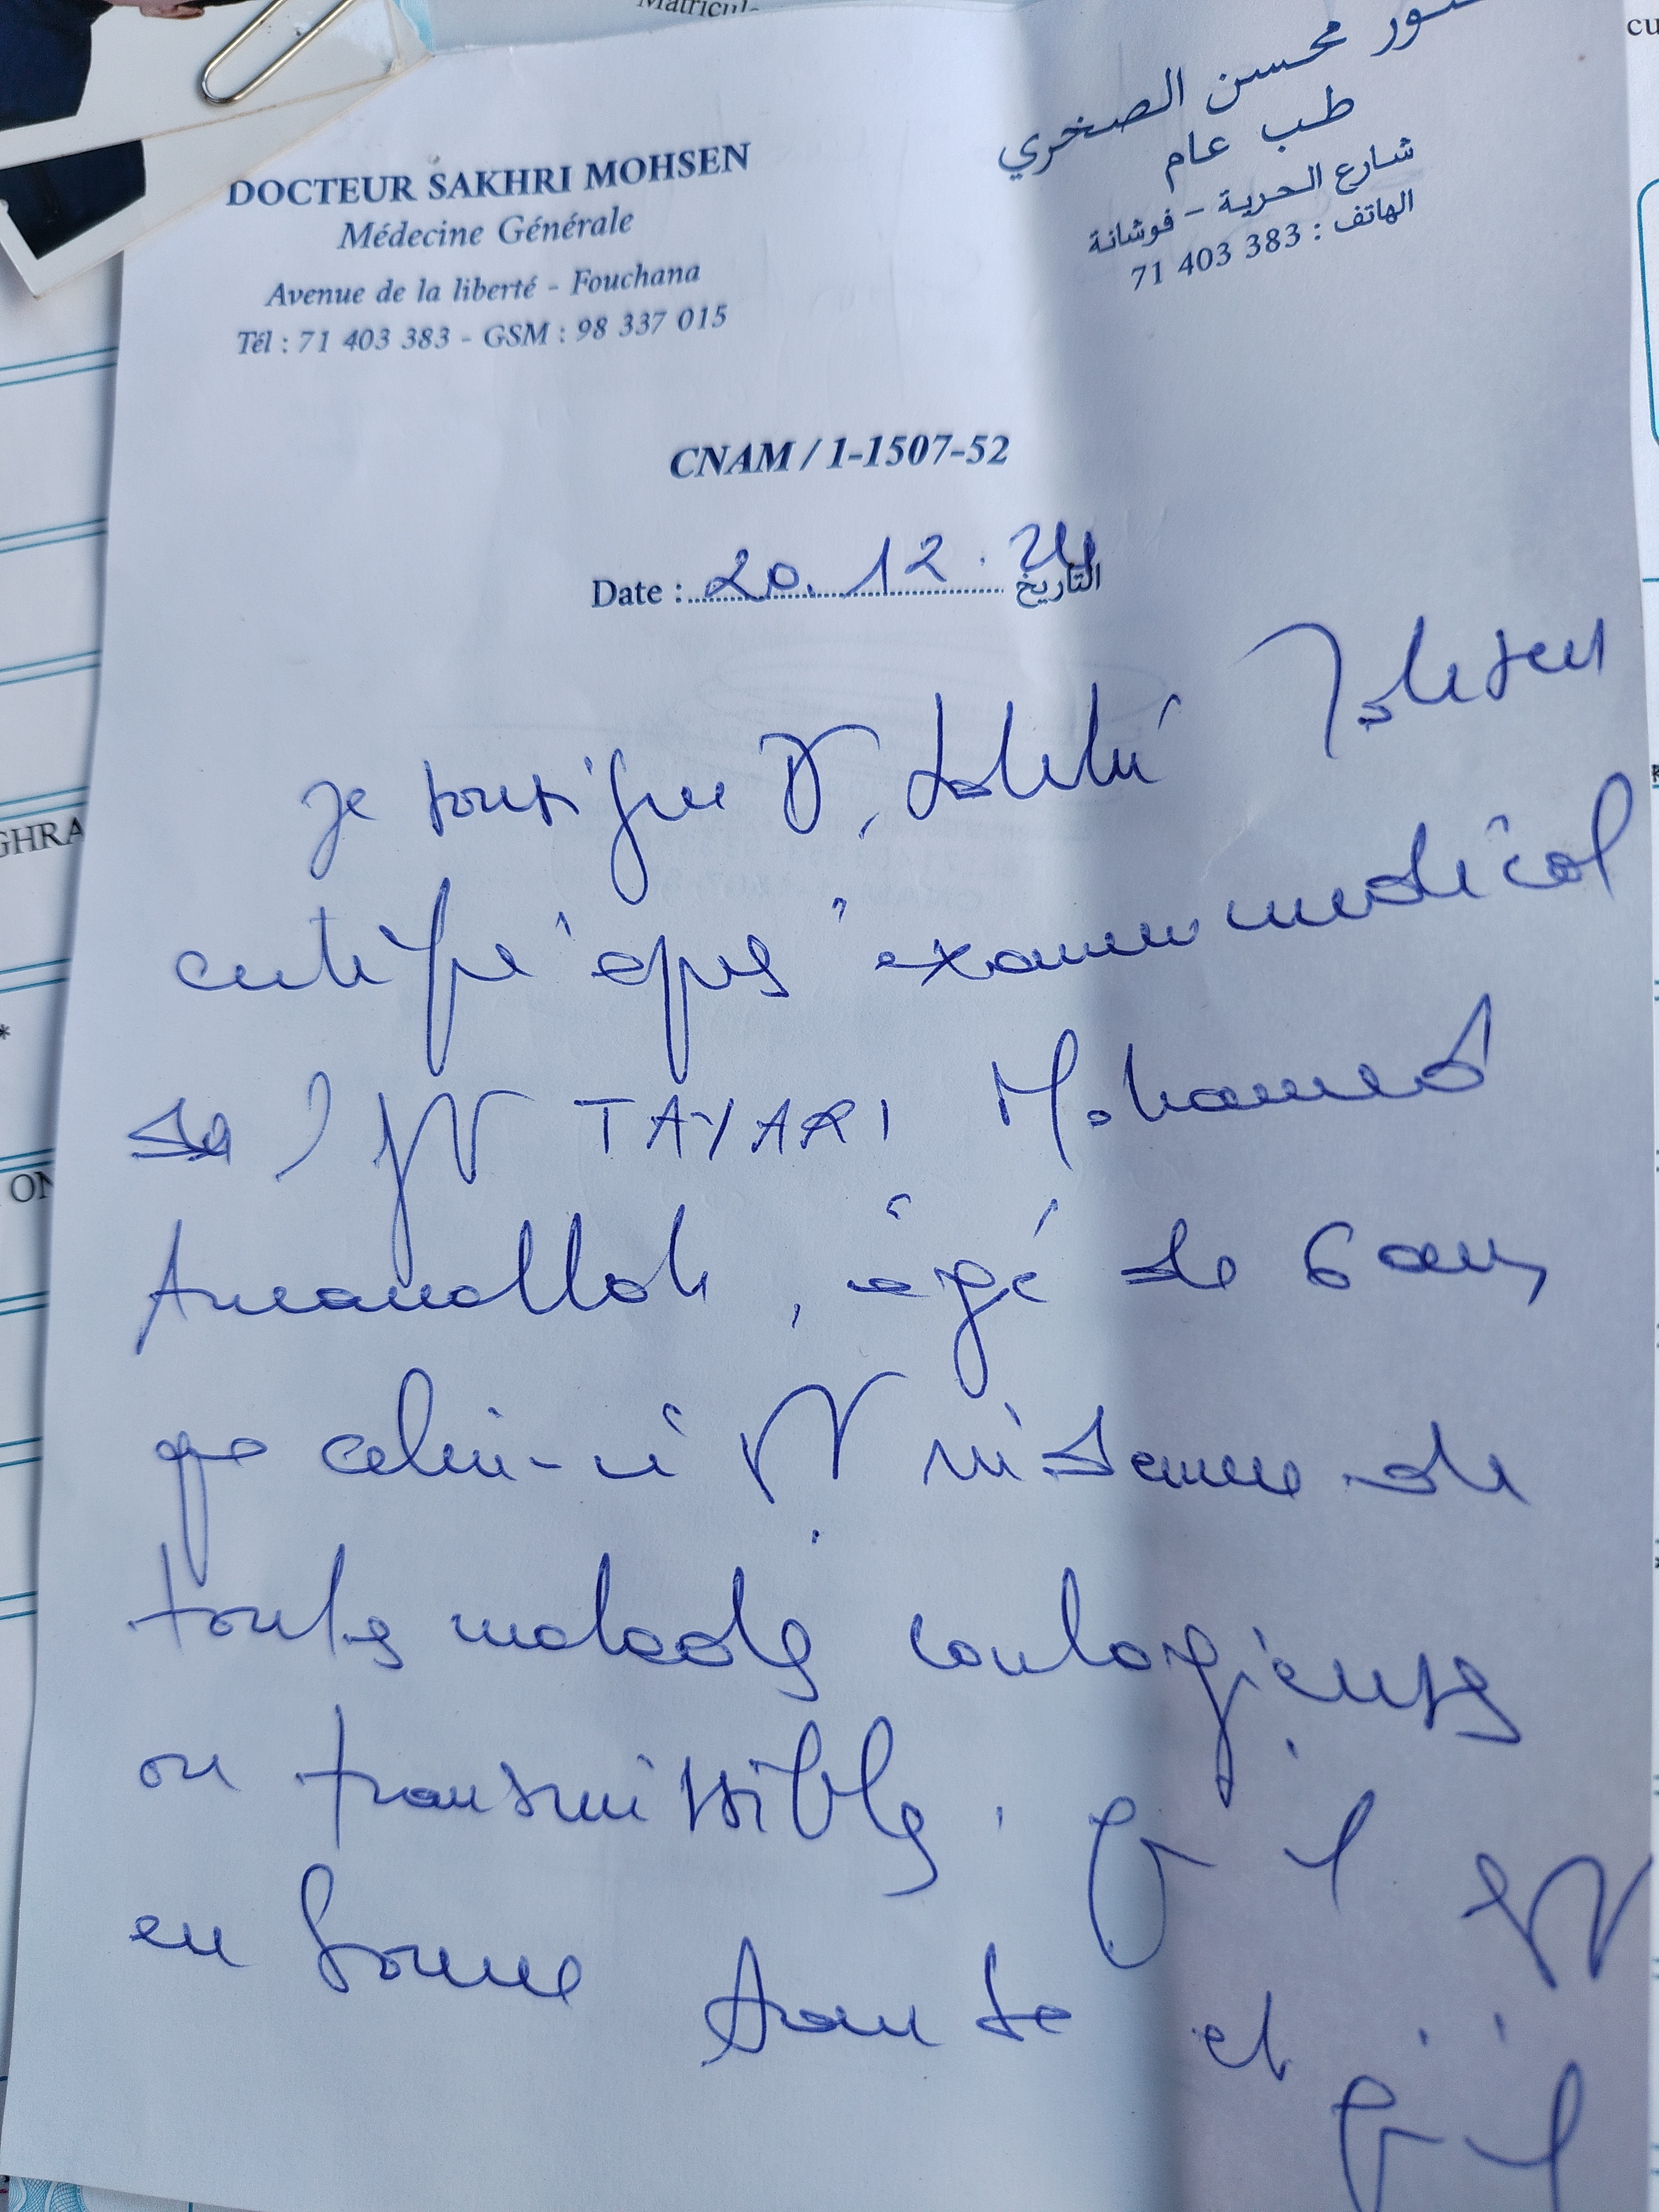 Matricul
cu
DOCTEUR SAKHRI MOHSEN
Médecine Générale
Avenue de la liberté - Fouchana
Tél : 71 403 383 - GSM : 98 337 015
ور محسن الصخري
طب عام
شارع الحرية - فوشانة
الهاتف : 383 403 71
CNAM / 1-1507-52
Date : 20.12.24 التاريخ
GHRA
ON
Je soussigné Dr. Sakhri Mohsen
certifie après examen médical
de TAYARI Mohamed
Amanallah, âgé de 6 ans,
que celui-ci est indemne de
toutes maladies contagieuses
ou transmissibles. qu'il est
en bonne santé et qu'il